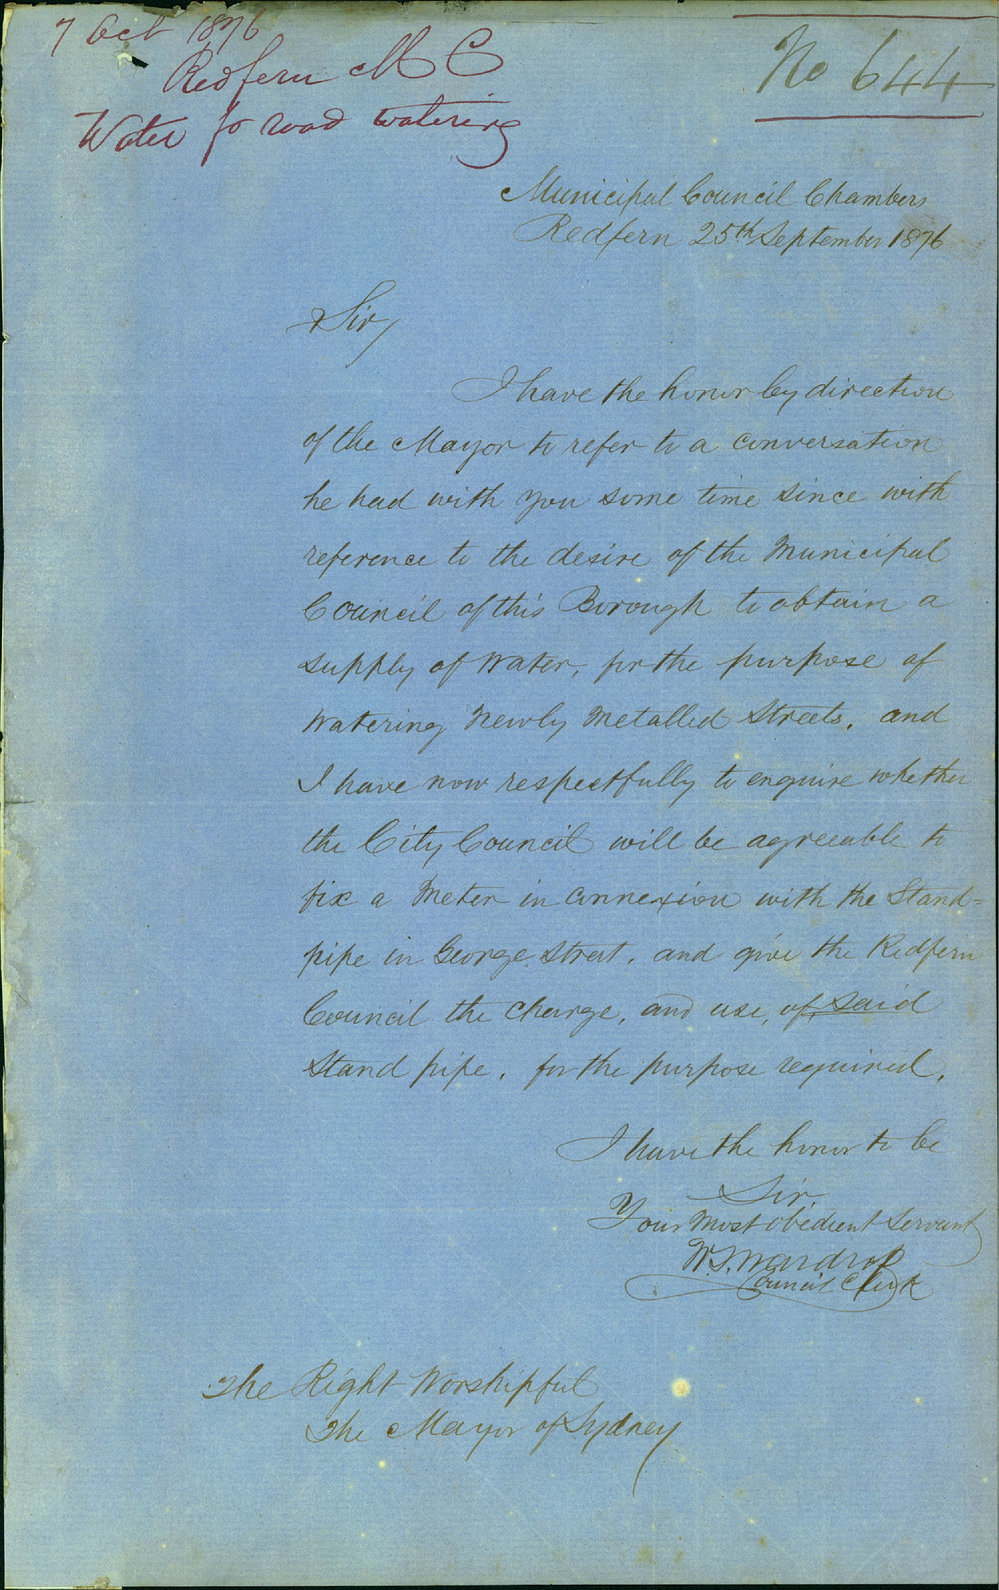 7 Oct 1876
Redfern M C
Water fo road watering
No 644
Municipal Council Chambers
Redfern 25th September 1876
Sir,
I have the honor by direction
of the Mayor to refer to a conversation
he had with you some time since with
reference to the desire of the Municipal
Council of this Borough to obtain a
supply of Water, for the purpose of
Watering Newly Metalled Streets. and
I have now respectfully to enquire whether
the City Council will be agreeable to
fix a Meter in connexion with the Stand=
pipe in George Street, and give the Redfern
Council the charge, and use, of said
Stand pipe, for the purpose required.
I have the honor to be
Sir,
Your Most obedient Servant
W.S. Wardrop
Council Clerk
The Right Worshipful
The Mayor of Sydney